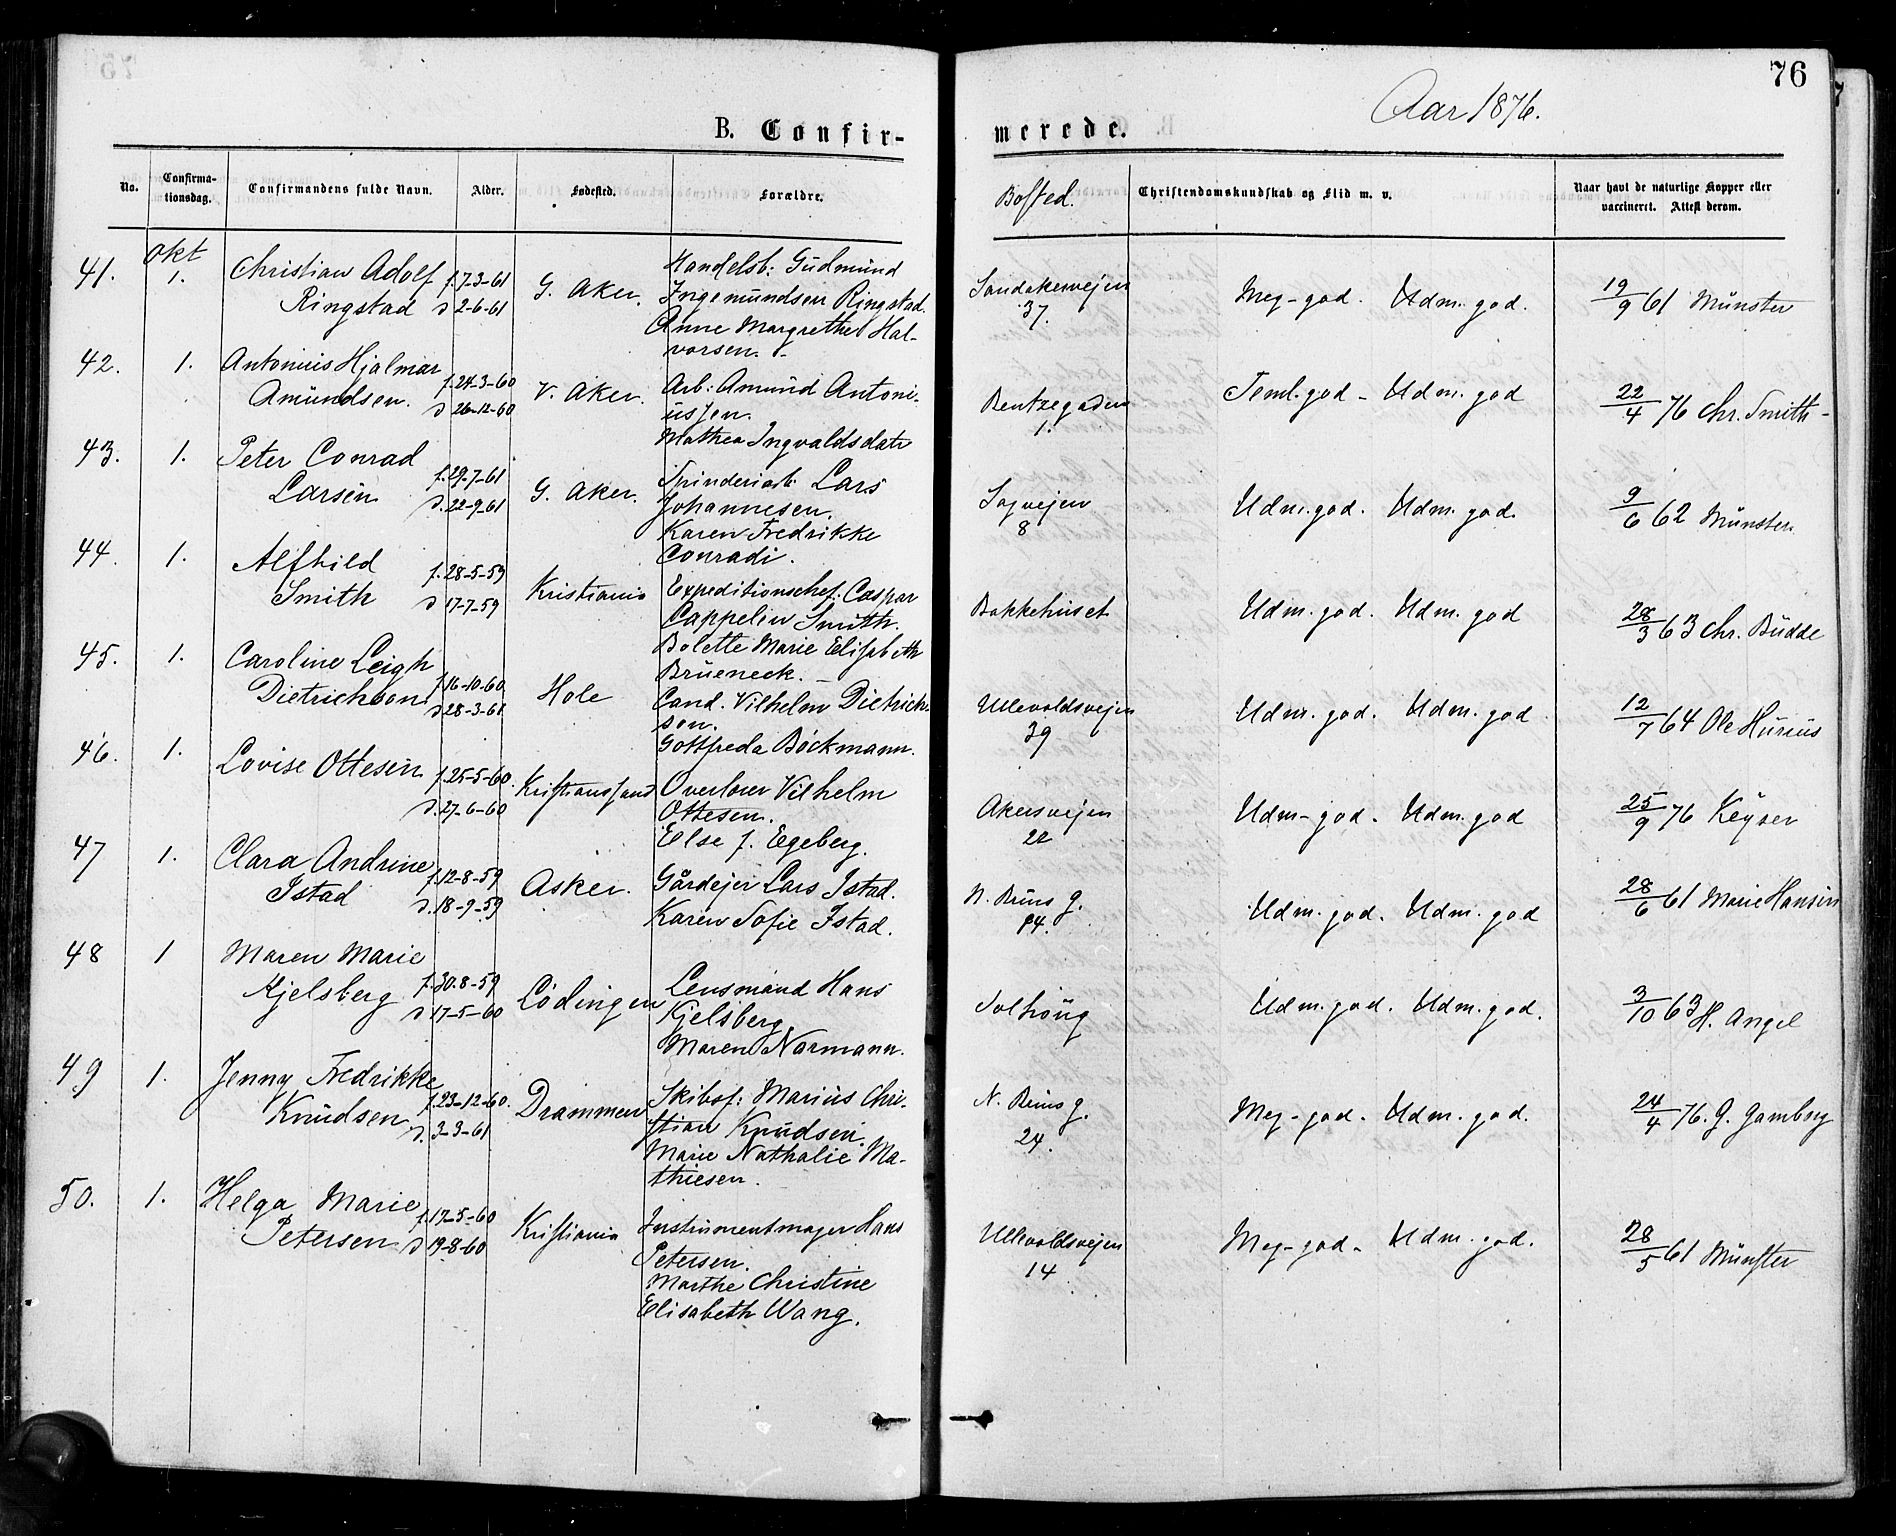 76
Aar 1876.
B. Confir- merede.
No. Confirma-tionsdag. Confirmandens fulde Navn. Alder. Fødested. Forældre. Bosted. Christendomskundskab og Flid m. v. Naar havt de naturlige Kopper eller vaccineret. Attest derom.
Okt
41. 1. Christian Adolf f. 7-3-61 G. Aker. Handelsb: Gudmund Sandakerveien Meg-god. Udm. god. 19/9 61 Münster
Ringstad d 2-6-61 Ingemundsen Ringstad. 37.
Anne Margrethe Hal-
vorsen.
42. 1. Antonius Hjalmar f. 24-3-60 V. Aker. Arb: Amund Antoni- Bentzegaden Teml. god - Udm. god 22/4 76 Chr. Smith -
Amundsen. d 26-12-60 ussen. 1.
Mathea Ingvaldsdatr
43. 1. Peter Conrad f. 29-7-61 G. Aker. Spinderiarb: Lars Sagvejen Udm. god. Udm. god. 9/6 62 Münster.
Larsen d. 22-9-61 Johannesen. 8
Karen Fredrikke
Conradi.
44. 1. Alfhild f. 28-5-59 Kristiania Expeditionschef: Caspar Bakkehuset Udm. god. Udm. god 28/3 63 Chr. Budde
Smith d 17-7-59 Cappelen Smith.
Bolette Marie Elisabeth
Brueneck. -
45. 1. Caroline Leigh f. 16-10-60 Hole Cand. Vilhelm Dietrich- Ullevoldsvejen Udm. god. Udm. god 12/7 64 Ole Husius
Dietrichson d. 28-3-61 son. 39
Gottfreda Böckmann.
46. 1. Lovise Ottesen f. 25-5-60 Kristianssand Overlærer Vilhelm Akersvejen Udm-god. Udm. god 25/9 76 Keyser
d. 27-6-60 Ottesen. 22
Else f. Egeberg.
47 1. Clara Andrine f. 12-8-59 Asker. Gårdejer Lars Istad. N. Bruns g. Udm. god. Udm. god 28/6 61 Marie Hansen
Istad d. 18-9-59 Karen Sofie Istad. 14.
48 1 Maren Marie f. 30-8-59 Lödingen Lensmand Hans Solhöug Udm. god. Udm. god. 3/10 63 H. Angel
Kjelsberg d 17-5-60 Kjelsberg
Maren Normann.
49 1. Jenny Fredrikke f. 23-12-60. Drammen Skibsf: Marius Chri- N. Bruns g. Meg-god. Udm. god. 24/4 76. G. Gamborg
Knudsen d. 3-3-61 stian Knudsen. 24.
Marie Nathalie Ma-
thiesen.
50. 1. Helga Marie f. 17-5-60 Kristiania Instrumentmager Hans Ullevoldsvejen Meg-god - Udm. god. 28/5 61 Münster
Petersen d 19-8-60 Petersen. 14
Marthe Christine
Elisabeth Wang.